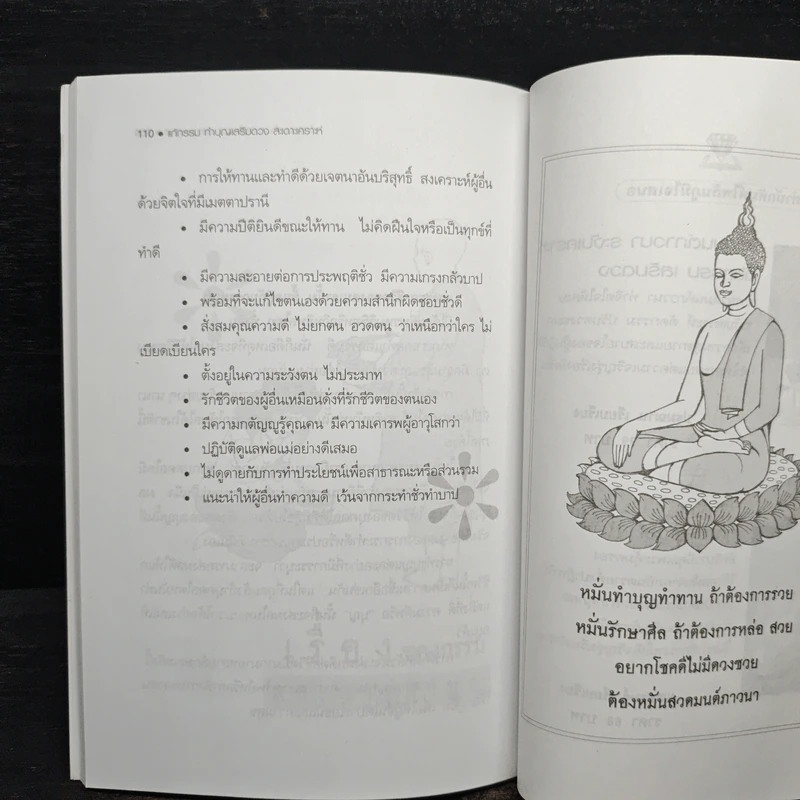 110 • แก้กรรม ทำบุญเสริมดวง สะเดาะเคราะห์
• การให้ทานและทำดีด้วยเจตนาอันบริสุทธิ์ สงเคราะห์ผู้อื่น
ด้วยจิตใจที่มีเมตตาปรานี
• มีความปีติยินดีขณะให้ทาน ไม่คิดฝืนใจหรือเป็นทุกข์ที่
ทำดี
• มีความละอายต่อการประพฤติชั่ว มีความเกรงกลัวบาป
• พร้อมที่จะแก้ไขตนเองด้วยความสำนึกผิดชอบชั่วดี
• สั่งสมคุณความดี ไม่ยกตน อวดตน ว่าเหนือกว่าใคร ไม่
เบียดเบียนใคร
• ตั้งอยู่ในความระวังตน ไม่ประมาท
• รักชีวิตของผู้อื่นเหมือนดั่งที่รักชีวิตของตนเอง
• มีความกตัญญูรู้คุณคน มีความเคารพผู้อาวุโสกว่า
• ปฏิบัติดูแลพ่อแม่อย่างดีเสมอ
• ไม่ดูดายกับการทำประโยชน์เพื่อสาธารณะหรือส่วนรวม
• แนะนำให้ผู้อื่นทำความดี เว้นจากกระทำชั่วทำบาป
หมั่นทำบุญทำทาน ถ้าต้องการรวย
หมั่นรักษาศีล ถ้าต้องการหล่อ สวย
อยากโชคดีไม่มีดวงซวย
ต้องหมั่นสวดมนต์ภาวนา